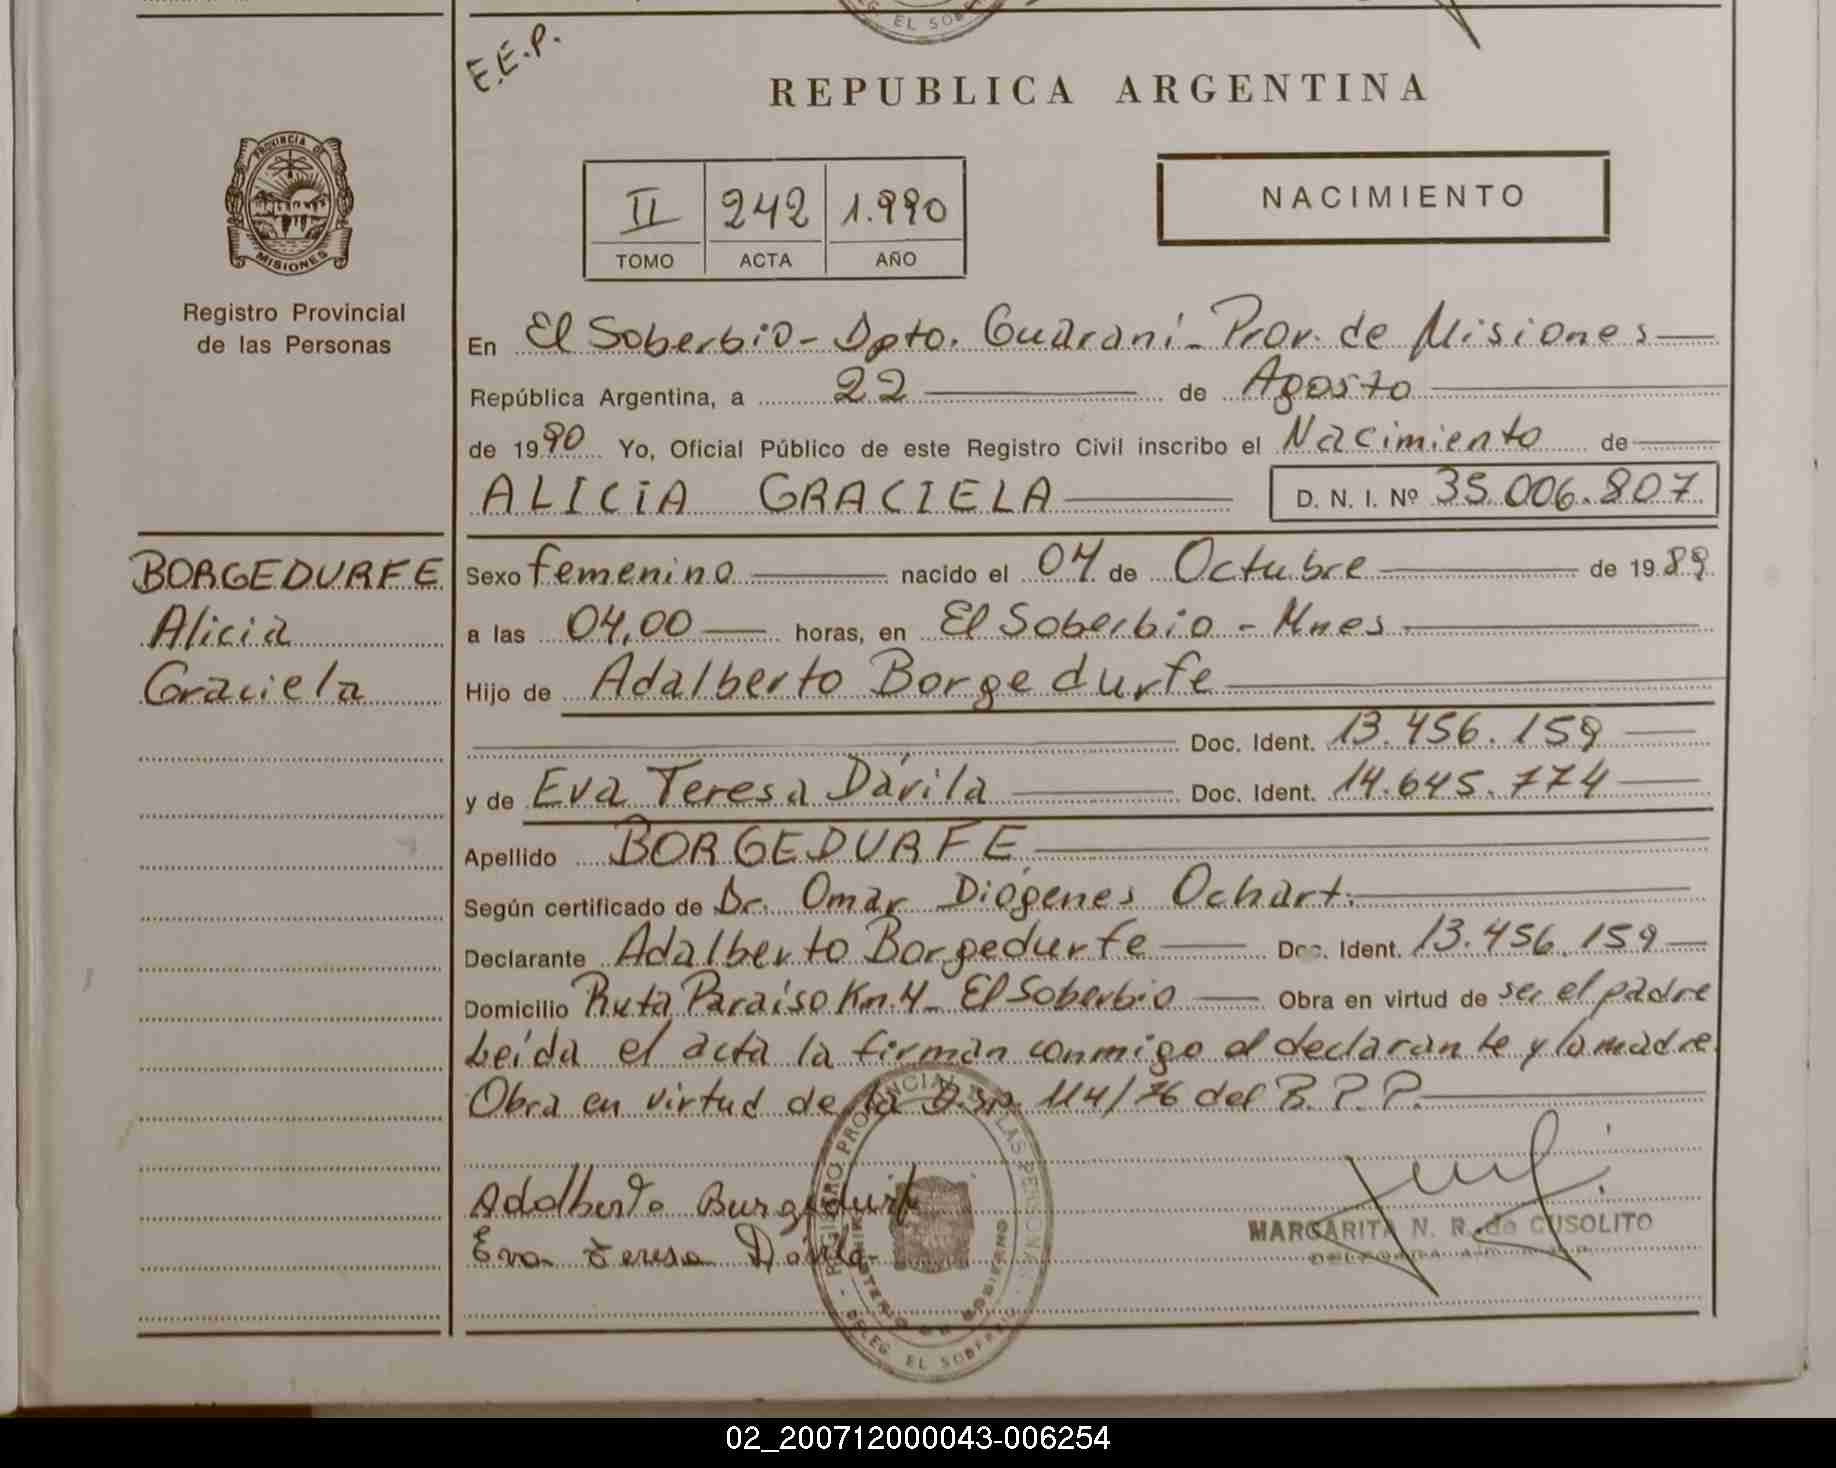 EG. EL SOBER
E.E.P.
REPUBLICA ARGENTINA
PROVINCIA DE
MISIONES
Registro Provincial
de las Personas
II 242 1.990
TOMO ACTA AÑO
NACIMIENTO
En El Soberbio - Dpto. Guaraní - Prov. de Misiones
República Argentina, a 22 de Agosto
de 1990 Yo, Oficial Público de este Registro Civil inscribo el Nacimiento de
ALICIA GRACIELA D. N. I. Nº 35.006.807
BORGEDURFE
Alicia
Graciela
Sexo femenino nacido el 04 de Octubre de 1989
a las 04,00 horas, en El Soberbio - Mnes
Hijo de Adalberto Borgedurfe
Doc. Ident. 13.456.159
y de Eva Teresa Dávila Doc. Ident. 14.645.774
Apellido BORGEDURFE
Según certificado de Dr. Omar Diógenes Ochart.
Declarante Adalberto Borgedurfe Doc. Ident. 13.456.159
Domicilio Ruta Paraíso Km.4 - El Soberbio Obra en virtud de ser el padre
Leída el acta la firman conmigo el declarante y la madre.
Obra en virtud de la Disp. 114/76 del R.P.P.
Adalberto Burgedurfe
Eva Teresa Dávila
REGISTRO PROVINCIAL DE LAS PERSONAS
MINISTERIO DE GOBIERNO
DELEG. EL SOBERBIO
MARGARITA N. R. de CUSOLITO
02_200712000043-006254